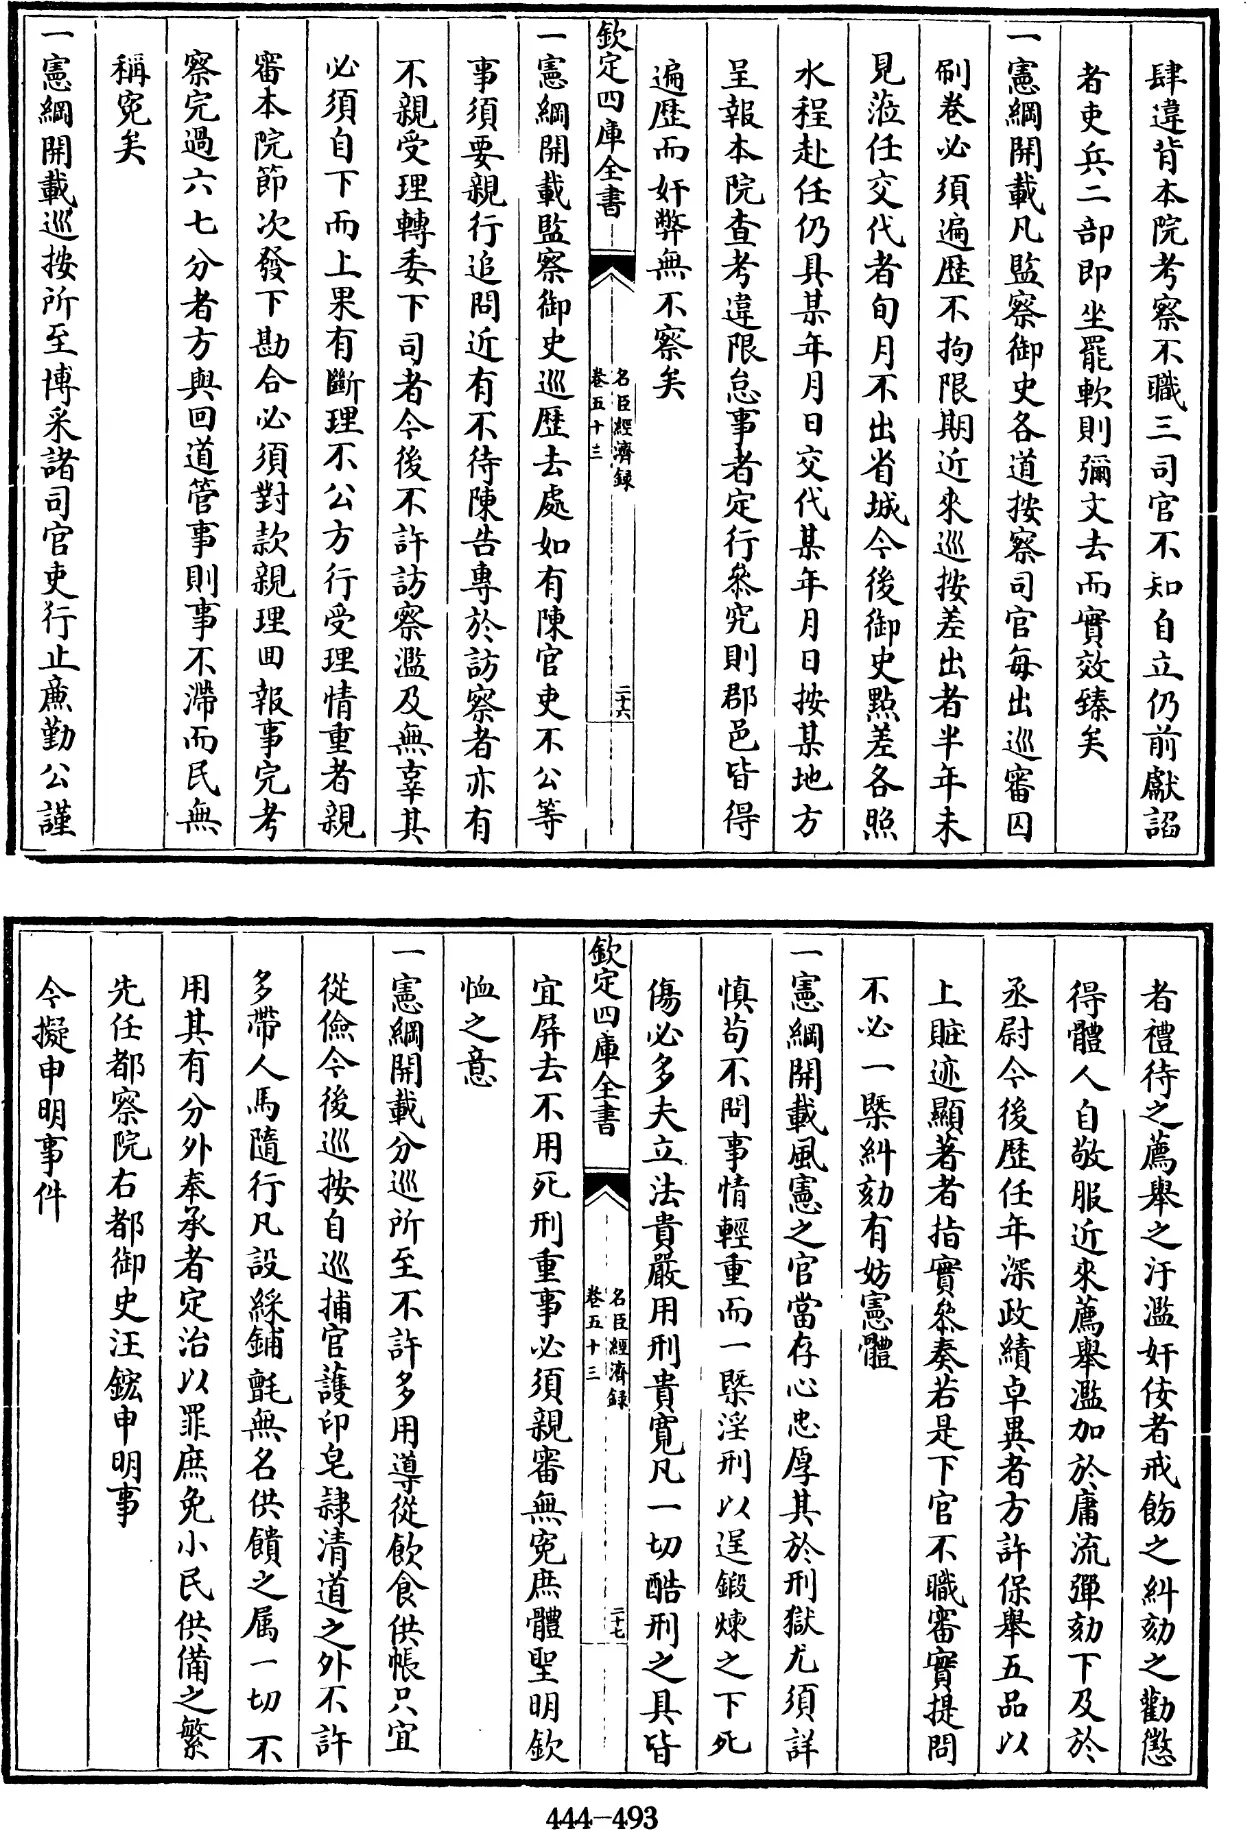 肆違背本院考察不職三司官不知自立仍前獻諂
者吏兵二部即坐罷軟則彌文去而實效臻矣
一憲綱開載凡監察御史各道按察司官每出巡審囚
刷卷必須遍歷不拘限期近來巡按差出者半年未
見蒞任交代者旬月不出省城今後御史點差各照
水程赴任仍具某年月日交代某年月日按某地方
呈報本院查考違限怠事者定行叅究則郡邑皆得
遍歷而奸弊無不察矣
欽定四庫全書
名臣經濟録
卷五十三
二十六
一憲綱開載監察御史巡歷去處如有陳官吏不公等
事須要親行追問近有不待陳告專於訪察者亦有
不親受理轉委下司者今後不許訪察濫及無辜其
必須自下而上果有斷理不公方行受理情重者親
審本院節次發下勘合必須對款親理回報事完考
察完過六七分者方與回道管事則事不滯而民無
稱寃矣
一憲綱開載巡按所至博采諸司官吏行止亷勤公謹
者禮待之薦舉之汙濫奸佞者戒飭之糾劾之勸懲
得體人自敬服近來薦舉濫加於庸流彈劾下及於
丞尉今後歷任年深政績卓異者方許保舉五品以
上賍迹顯著者指實叅奏若是下官不職審實提問
不必一槩糾劾有妨憲體
一憲綱開載風憲之官當存心忠厚其於刑獄尤須詳
慎茍不問事情輕重而一槩淫刑以逞鍛煉之下死
傷必多夫立法貴嚴用刑貴寛凡一切酷刑之具皆
欽定四庫全書
名臣經濟録
卷五十三
二十七
宜屏去不用死刑重事必須親審無寃庶體聖明欽
恤之意
一憲綱開載分巡所至不許多用導從飲食供帳只宜
從儉今後巡按自巡捕官護印皂隷清道之外不許
多帶人馬隨行凡設綵鋪氈無名供饋之属一切不
用其有分外奉承者定治以罪庶免小民供備之繁
先任都察院右都御史汪鋐申明事
今擬申明事件
444-493